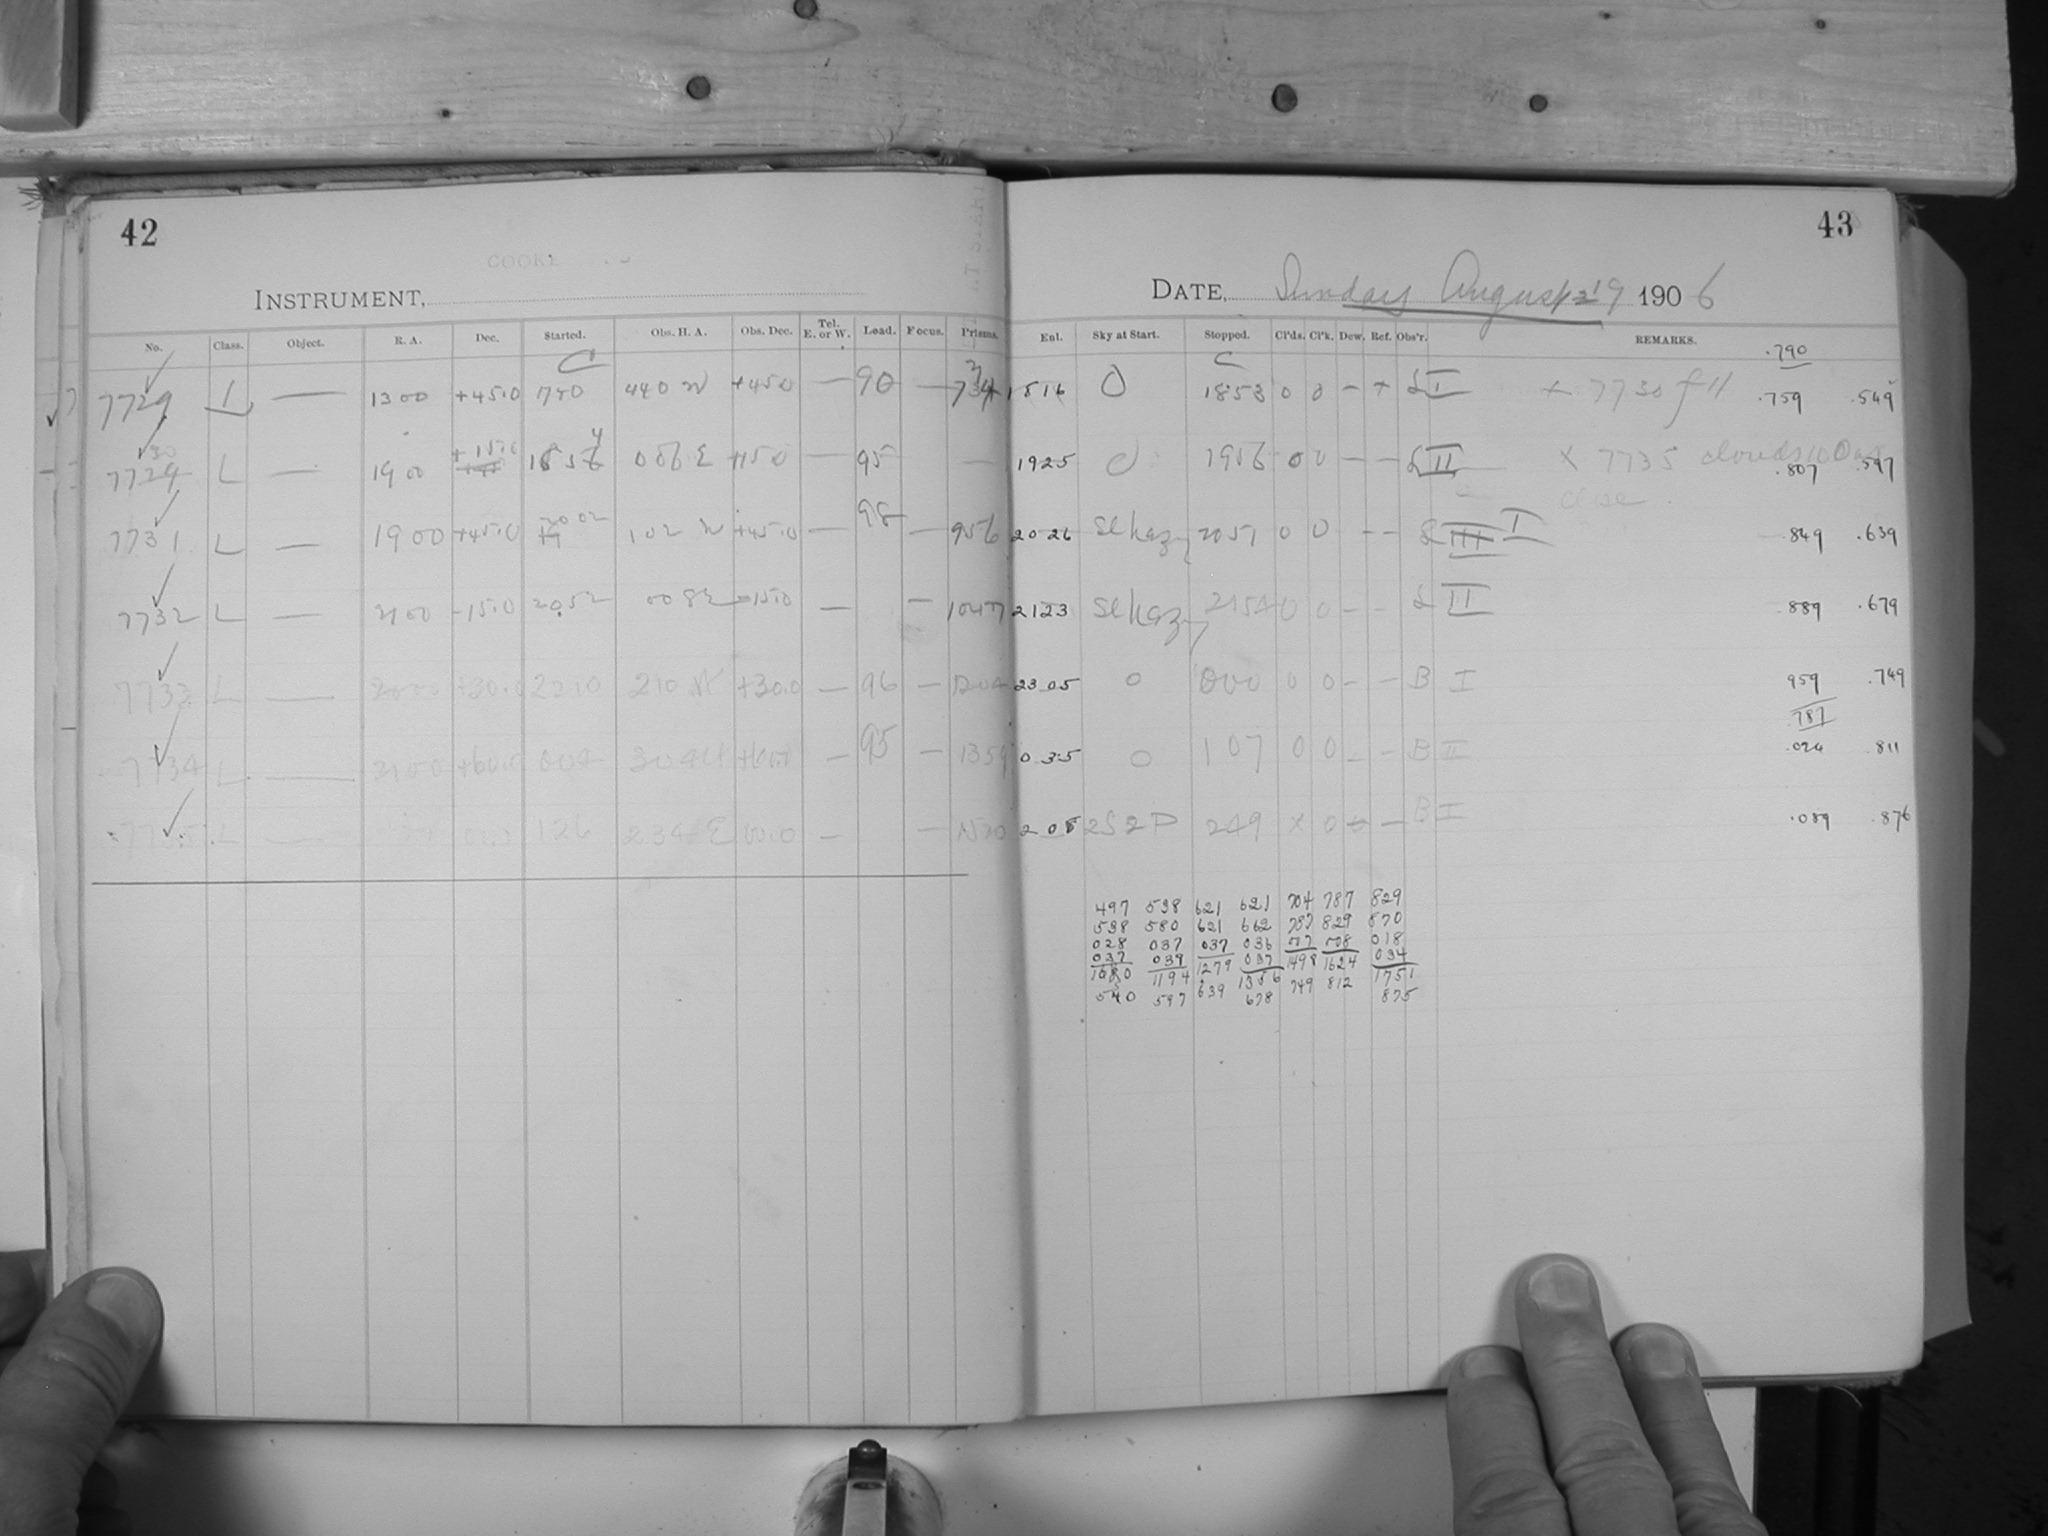 42
COOKE
INSTRUMENT,
No. Class. Object. R. A. Dec. Started. Obs. H. A. Obs. Dec. Tel. E. or W. Load. Focus. Prisms.
7729 — 1300 +45.0 440 W +45.0 — 90 —
7729 L — 1900 +15.0 006 E +15.0 — 95 —
7731 L — 1900 +45.0 2002 102 W +45.0 — 98 — 956
7732 L — 2100 -15.0 2052 008 E -15.0 — — 1047
7733 L — +30.0 2210 210 W +30.0 — 96 — 1204
7734 L — 2100 +60.0 004 304 W — 95 — 1359
L — 126 234 E — —
43
DATE, Sunday August 19 1906
Enl. Sky at Start. Stopped. Cl'ds. Cl'k. Dew. Ref. Obs'r. REMARKS.
.790
1516 0 1853 0 0 — + L I x 7730 f 11 .759 .549
1925 0 1956 0 0 — — L II x 7735 clouds .807 .597
close
2026 sl hazy 2057 0 0 — — L III I .849 .639
2123 sl hazy 2154 0 0 — — L II .889 .679
2305 0 000 0 0 — — B I 959 .749
.787
035 0 107 0 0 — — B II .024 .811
208 2S2P 249 x 0 — — B I .089 .876
497 538 621 621 704 787 829
538 580 621 662 787 829 870
028 037 037 036 008 018
037 039 1279 037 1498 1624 034
1080 1194 639 1356 749 812 1751
540 597 678 875